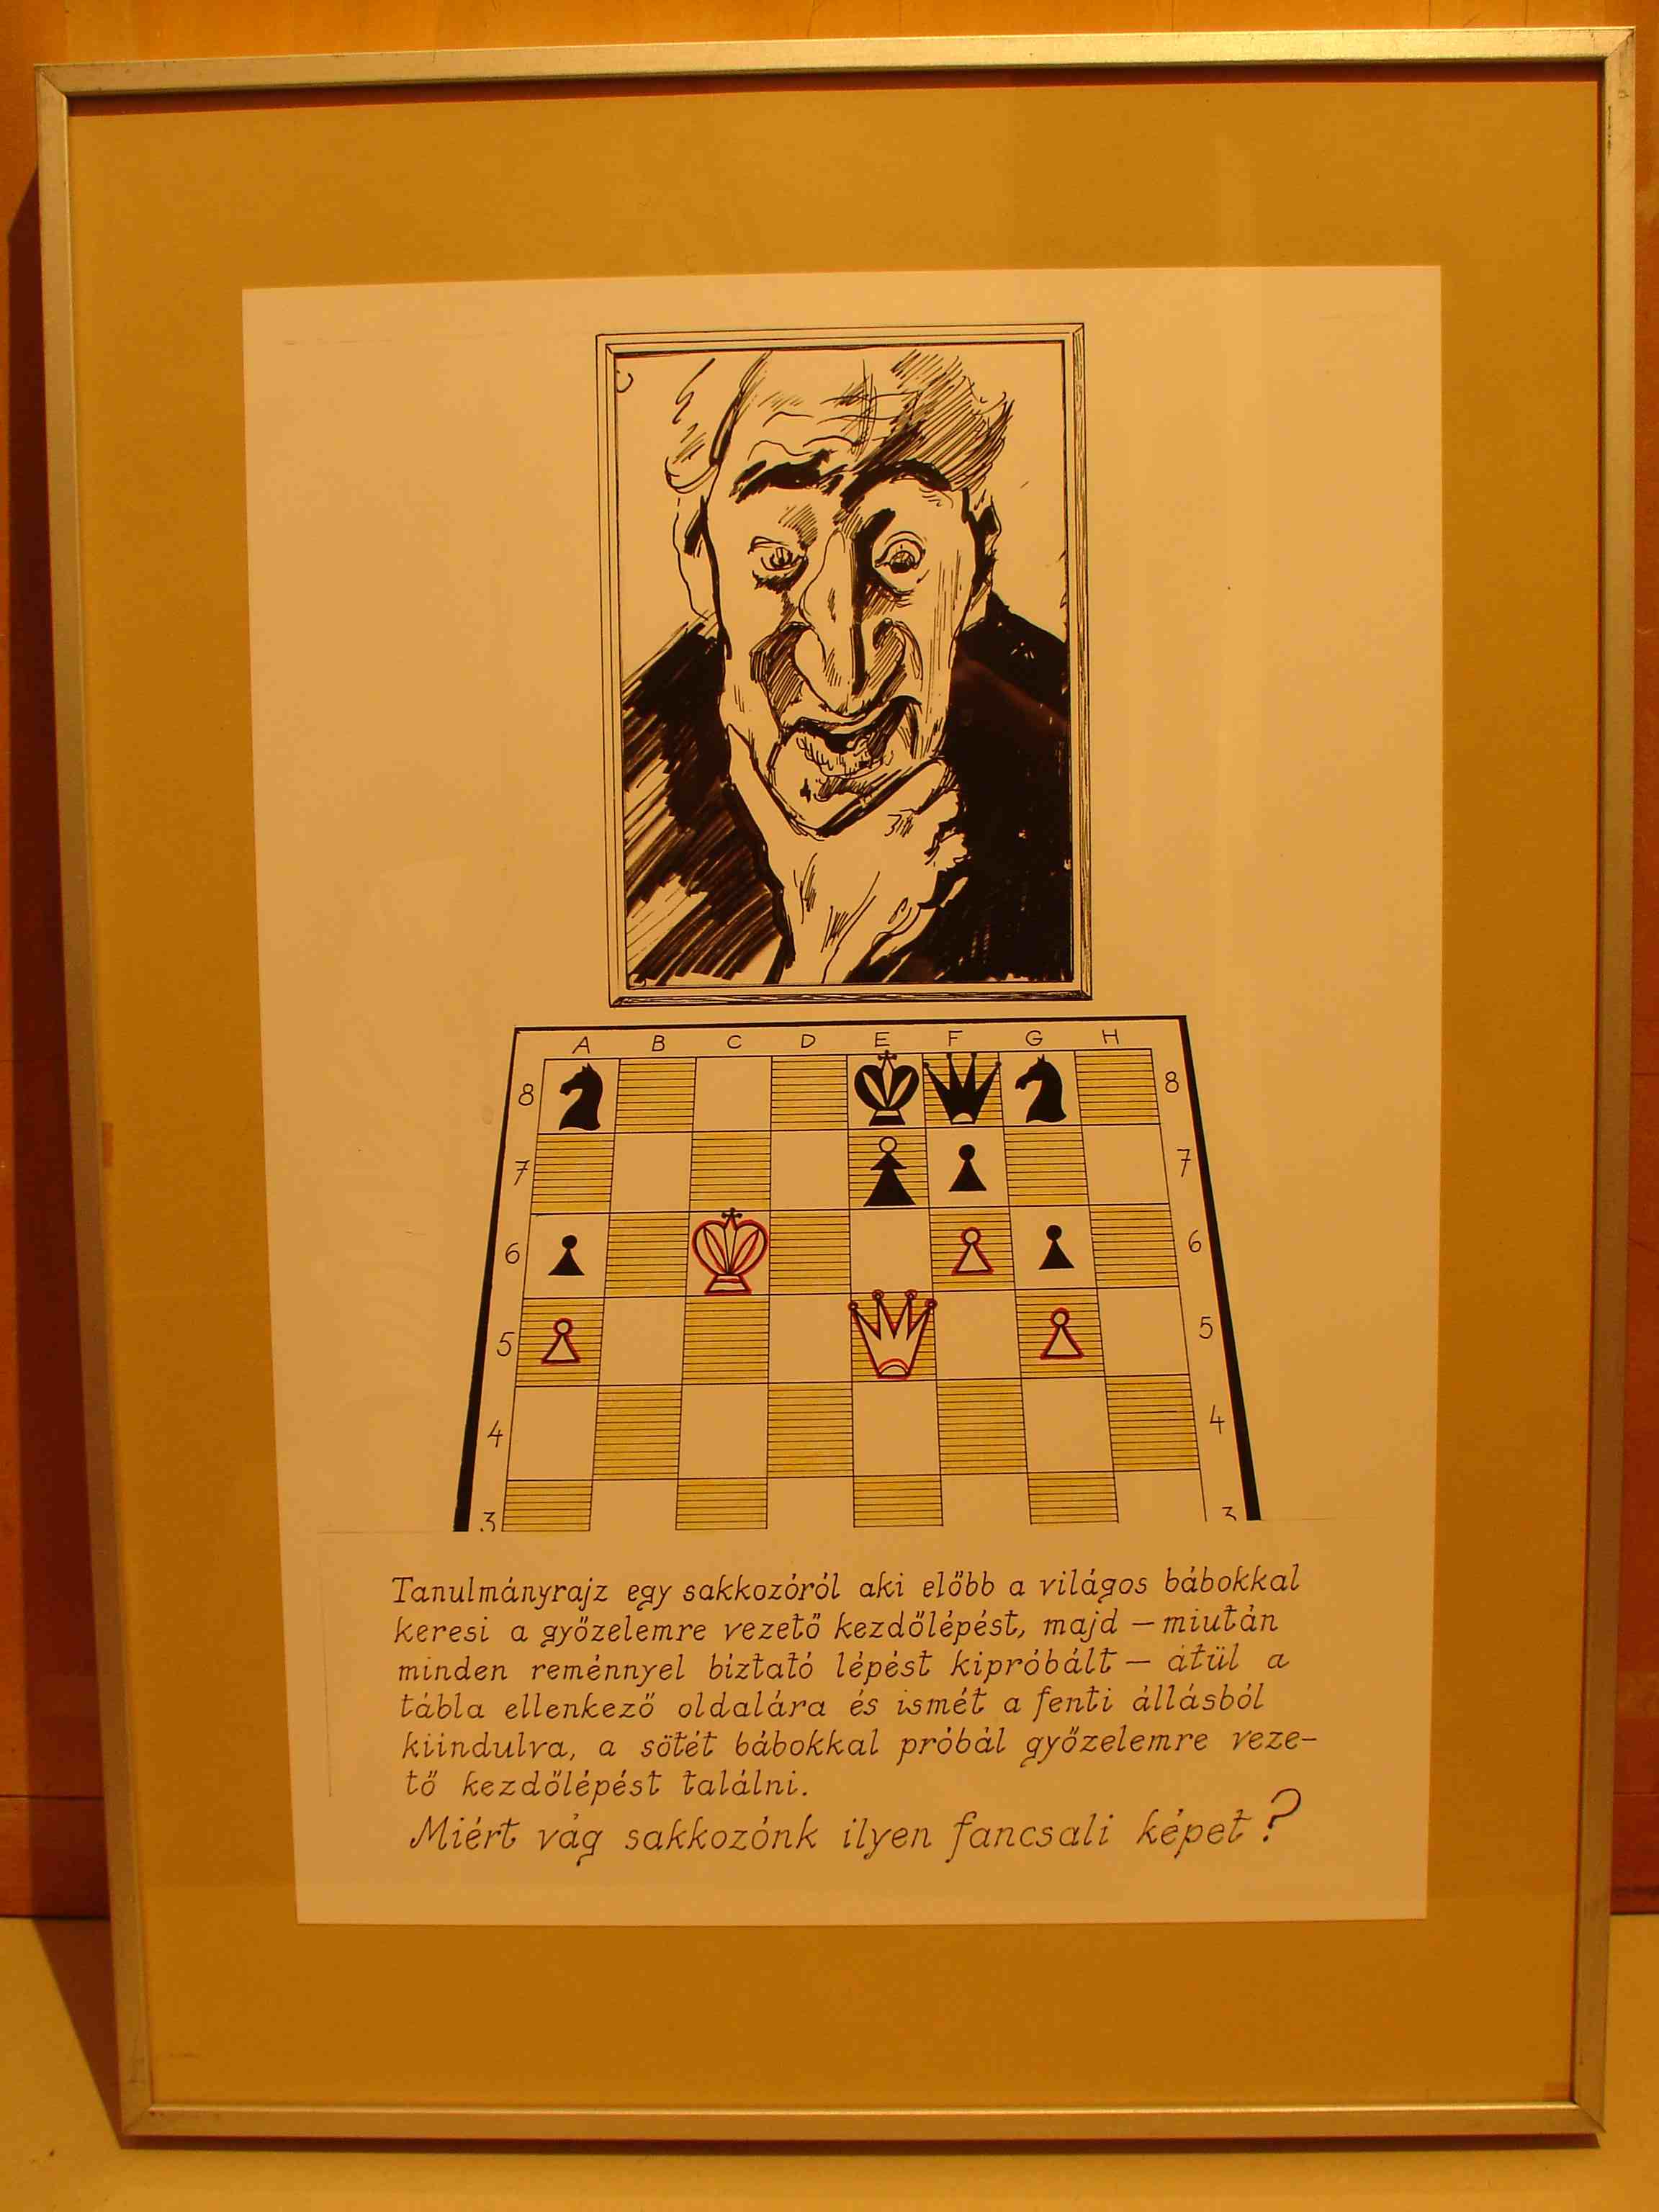 A B C D E F G H
8 8
7 7
6 6
5 5
4 4
3 3
Tanulmányrajz egy sakkozóról aki előbb a világos bábokkal
keresi a győzelemre vezető kezdőlépést, majd — miután
minden reménnyel bíztató lépést kipróbált — átül a
tábla ellenkező oldalára és ismét a fenti állásból
kiindulva, a sötét bábokkal próbál győzelemre veze-
tő kezdőlépést találni.
Miért vág sakkozónk ilyen fancsali képet?